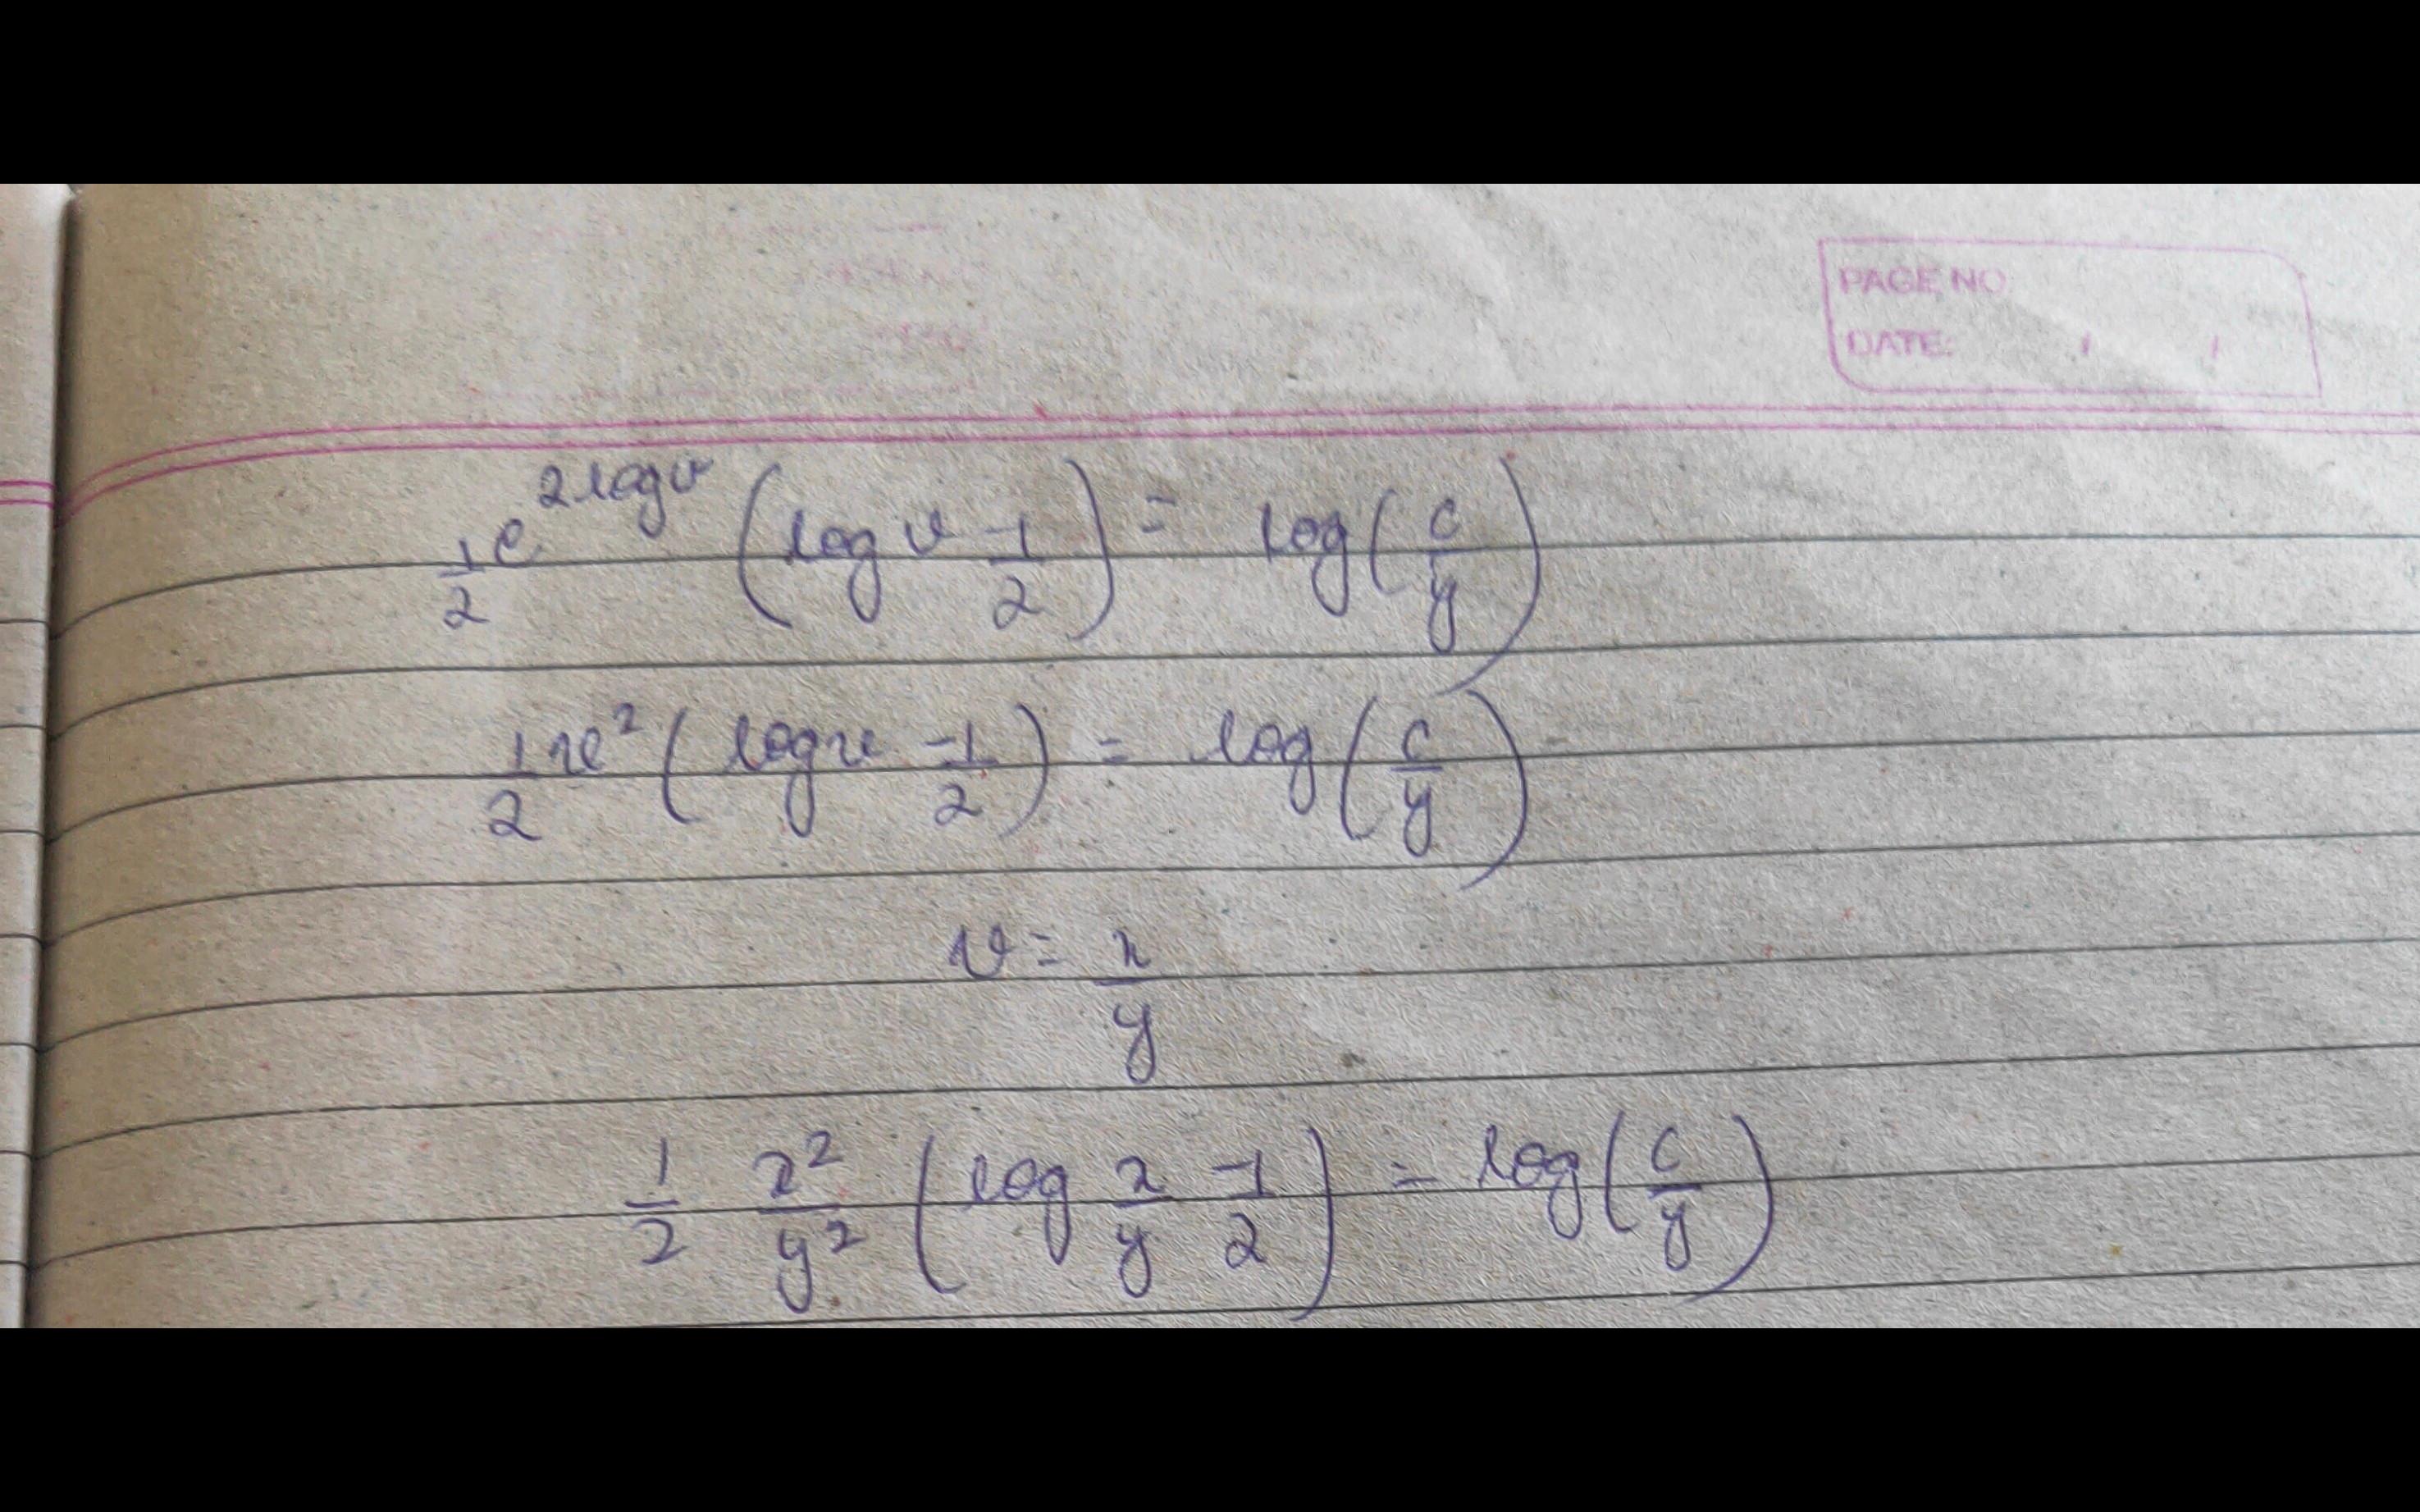 PAGE NO
DATE: / /
1/2 e^{2 log v} (log v - 1/2) = log (c/y)
1/2 v^2 (log v - 1/2) = log (c/y)
v = x/y
1/2 x^2/y^2 (log x/y - 1/2) = log (c/y)